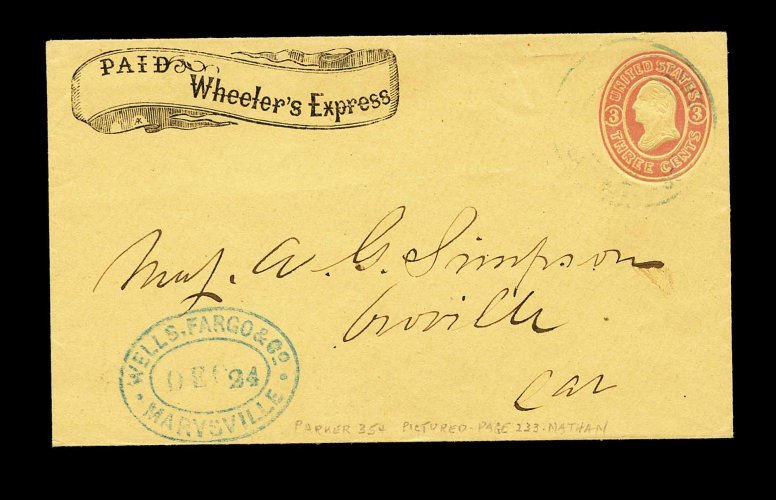 PAID
Wheeler's Express
UNITED STATES
3 3
THREE CENTS
Maj. A. G. Simpson
Oroville
Cal
WELLS, FARGO & Co.
DEC 24
MARYSVILLE
PARKER 354 PICTURED - PAGE 233 - NATHAN